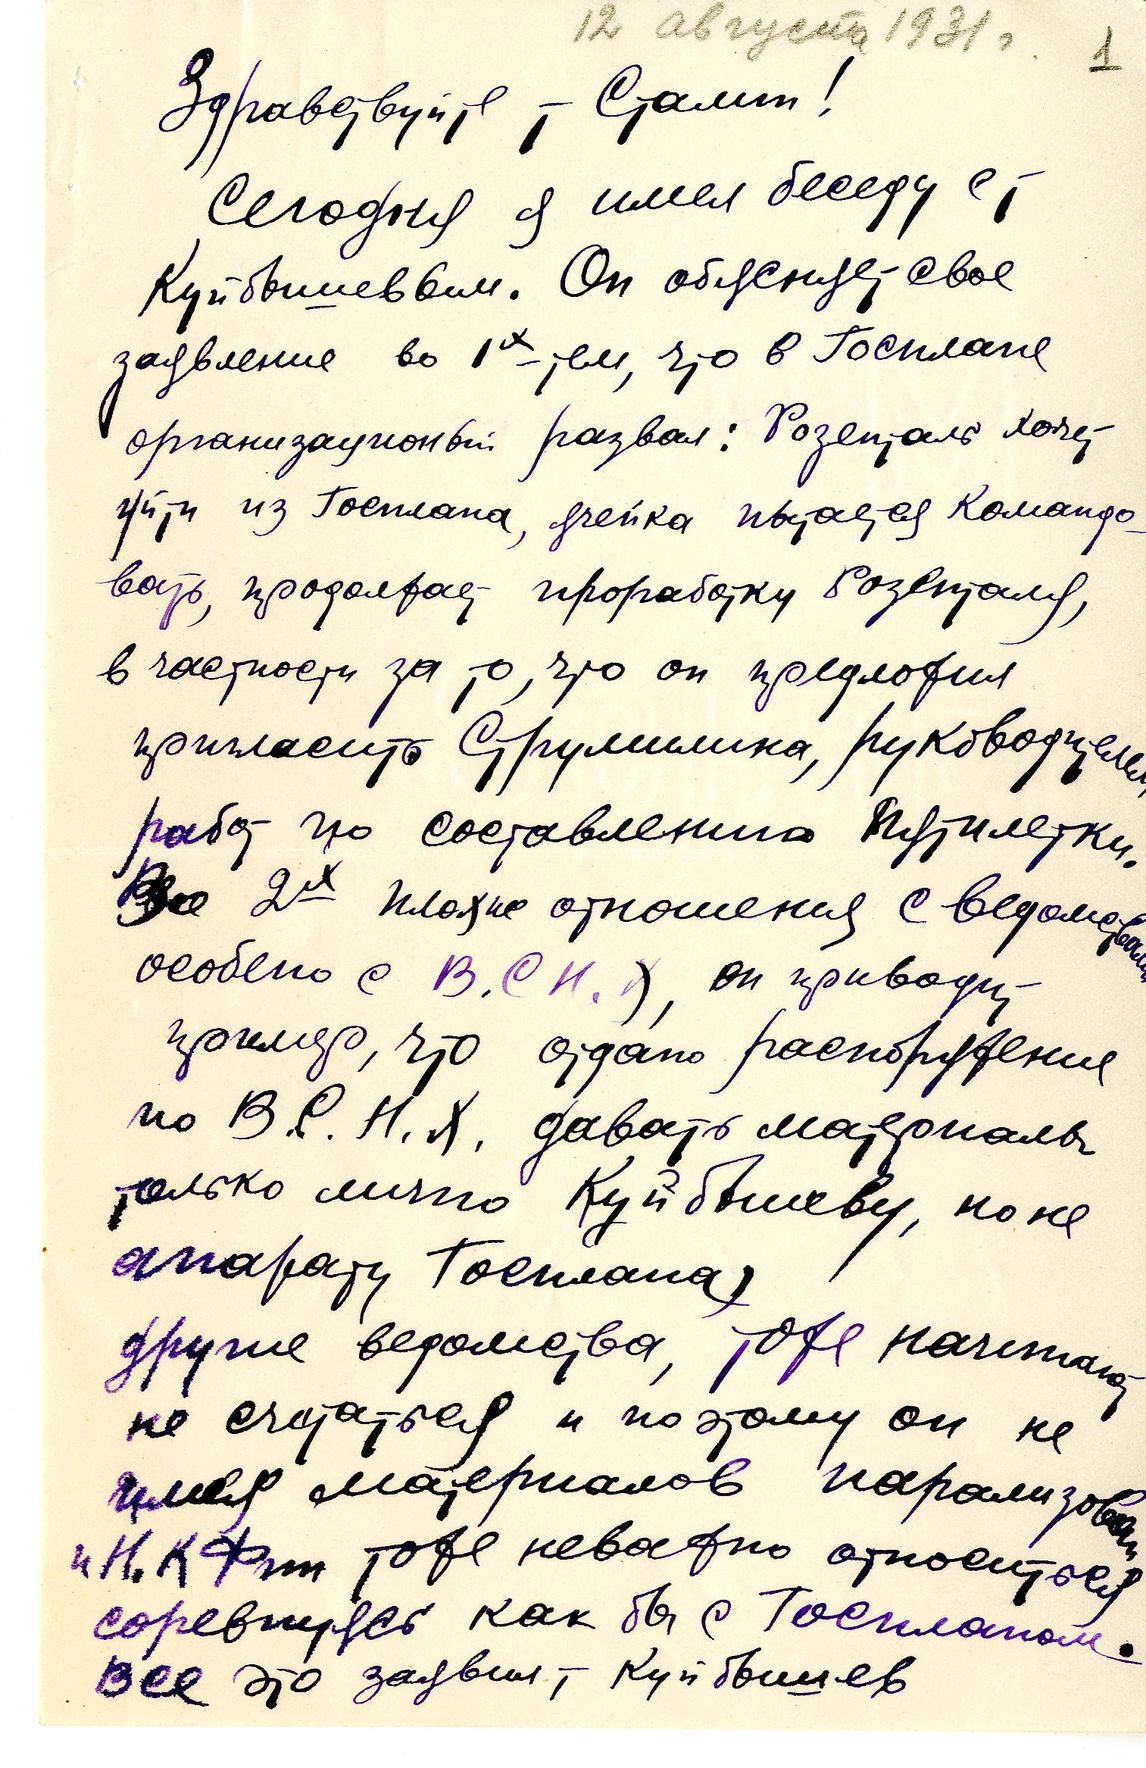 12 августа 1931 г.
1
Здравствуйте т Сталин!
Сегодня я имел беседу с т
Куйбышевым. Он объясняет свое
заявление во 1х тем, что в Госплане
организационый развал: Розенталь хочет
уйти из Госплана, ячейка пытается командо-
вать, продолжает проработку Розенталя,
в частности за то, что он предложил
пригласить Струмилина, руководителем
работ по составлению Пятилетки.
Во 2х плохие отношения с ведомствами
особено с В.С.Н.Х, он приводит
пример, что отдано распоряжение
по В.С.Н.Х. давать материалы
только лично Куйбышеву, но не
апарату Госплана,
другие ведомства, тоже начинают
не считаться и поэтому он не
имея материалов парализован
и Н.К Фин тоже неважно относиться
соревнуясь как бы с Госпланом.
Все это заявил т Куйбышев